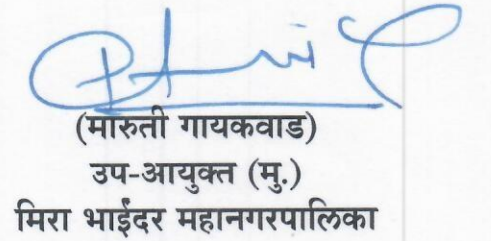 (मारुती गायकवाड)
उप-आयुक्त (मु.)
मिरा भाईंदर महानगरपालिका